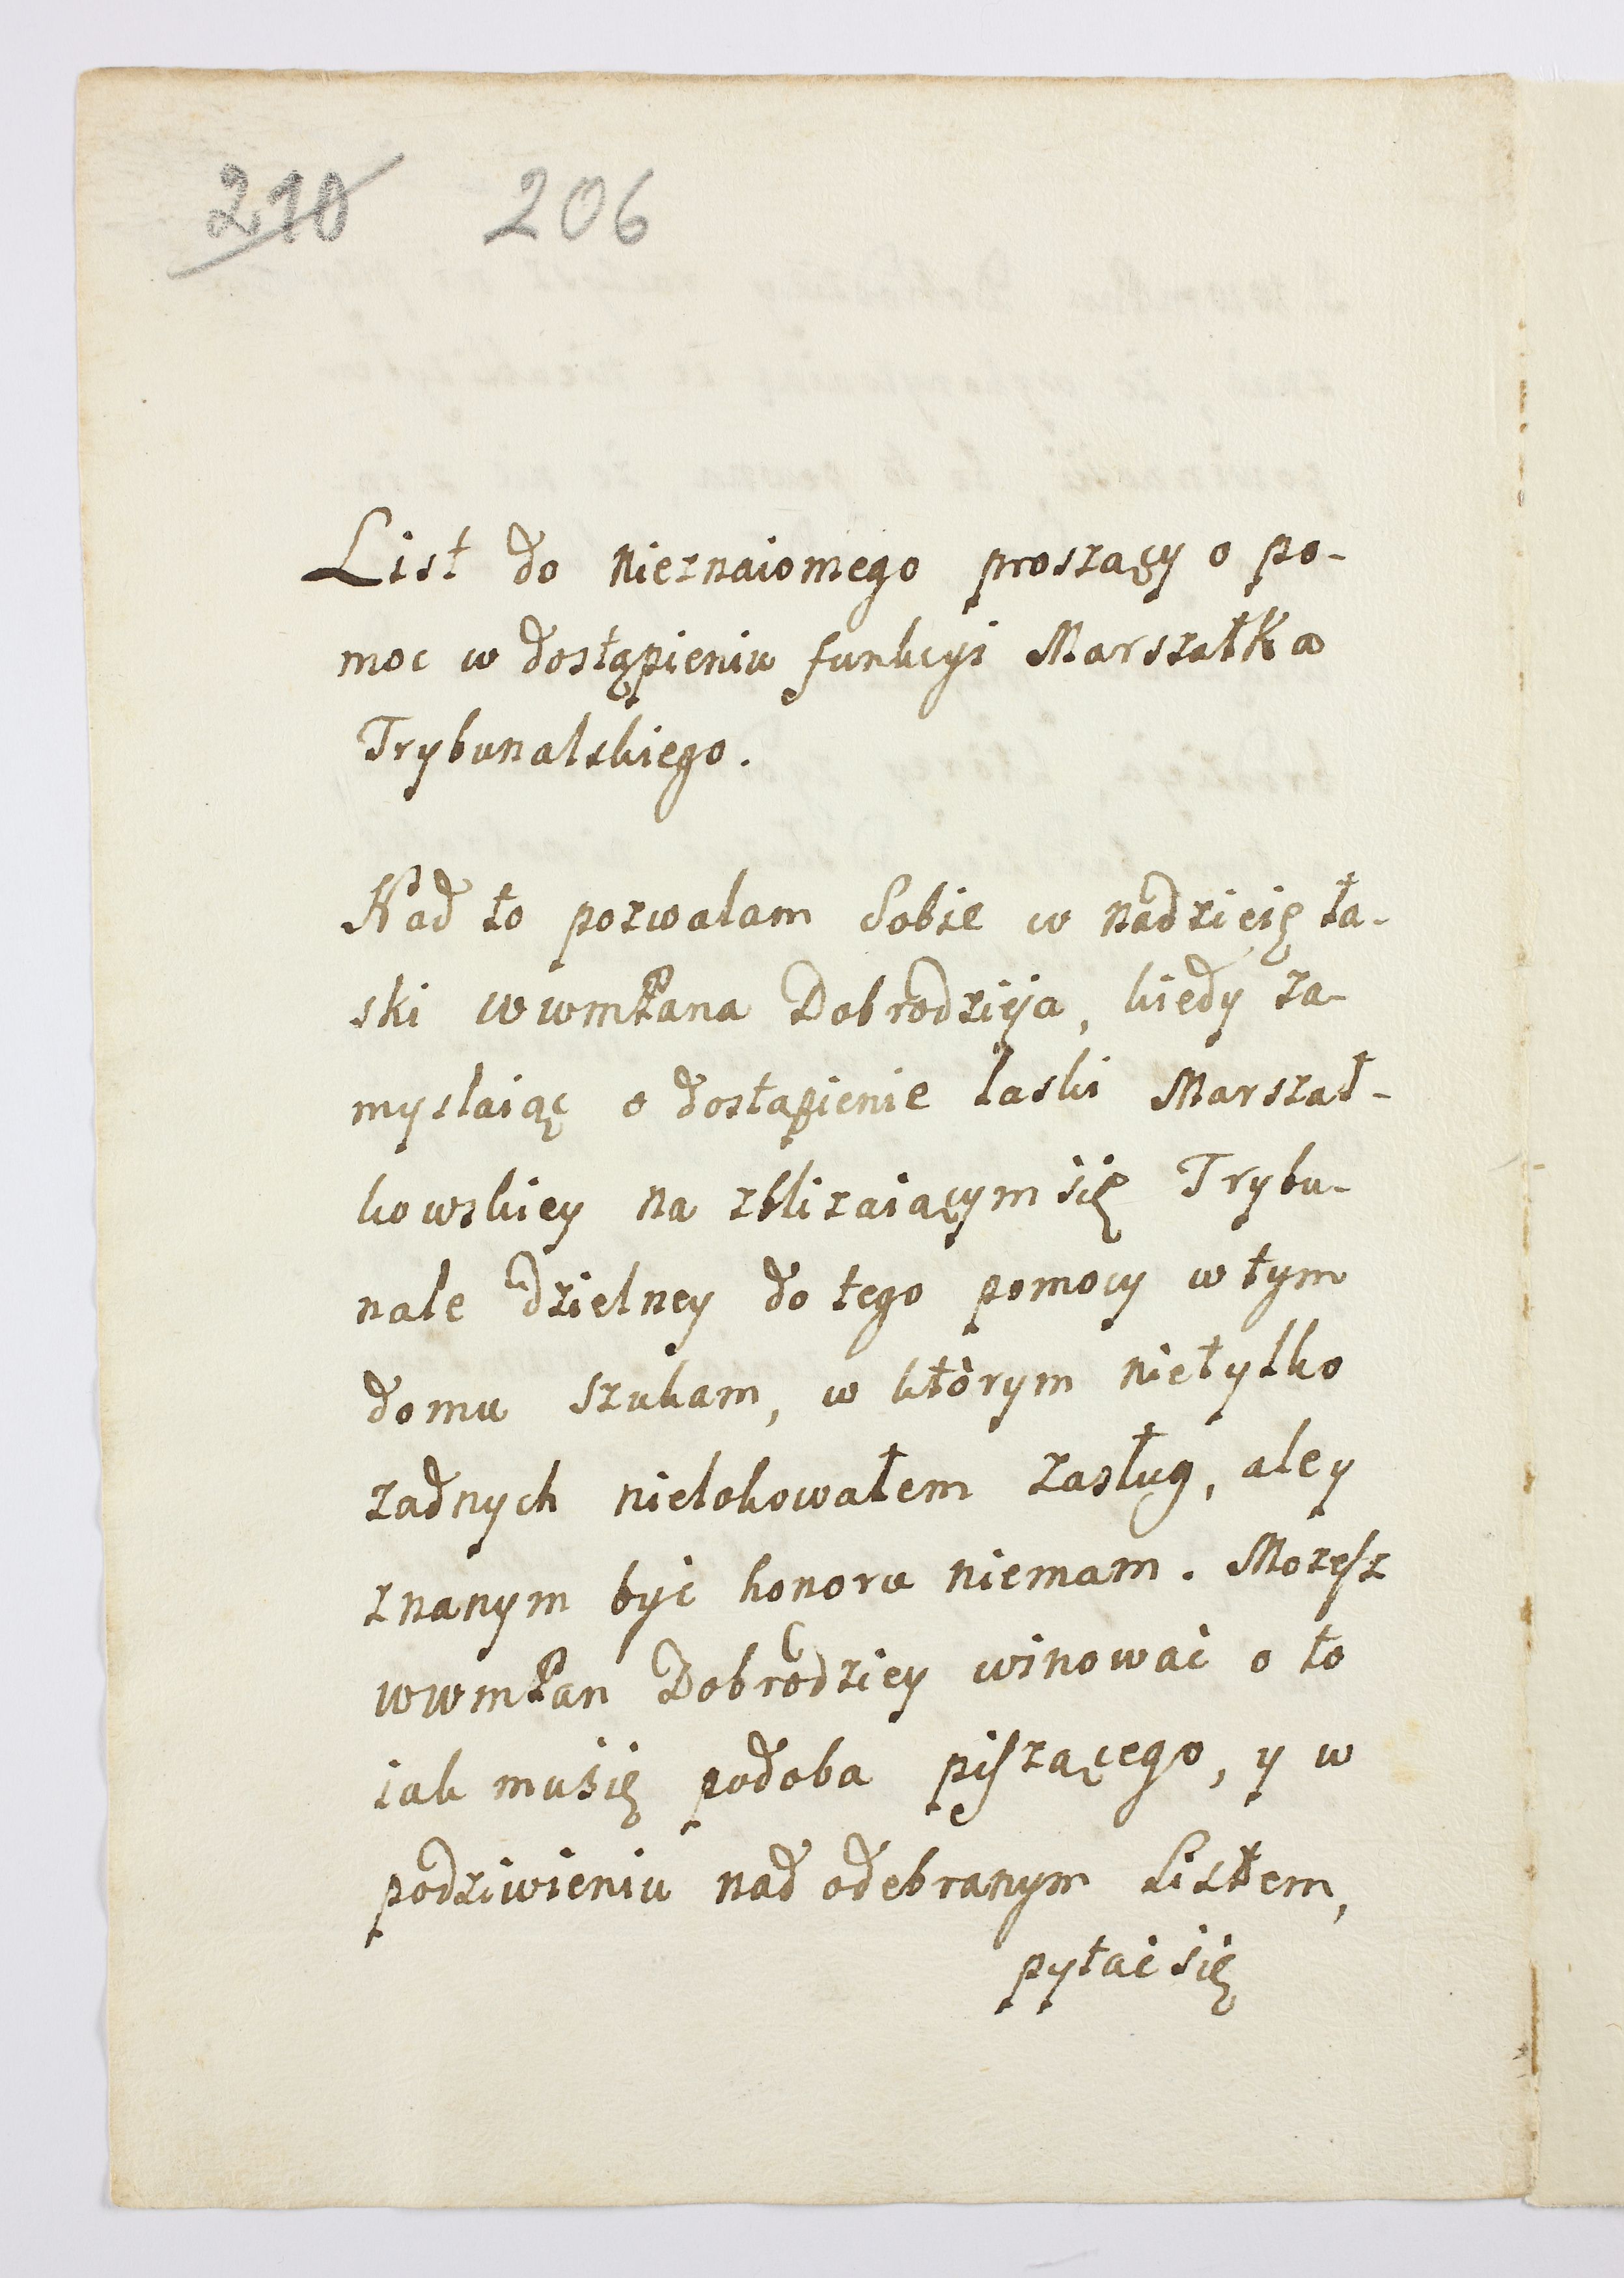 210 206
List do nieznaiomego proszący o po-
moc w dostąpieniu funkcyi Marszałka
Trybunalskiego.
Nad to pozwalam Sobie w nadzieię ła-
ski WWmPana Dobrodzieja, kiedy za-
myslaiąc o dostąpienie laski Marszał-
kowskiey na zblizaiącym się Trybu-
nale dzielney do tego pomocy w tym
domu szukam, w którym nietylko
zadnych nielokowałem zasług, aley
znanym być honoru niemam. Mozesz
WWmPan Dobrodziey winować o to
iak musię podoba piszącego, y w
podziwieniu nad odebranym Listem,
pytać się